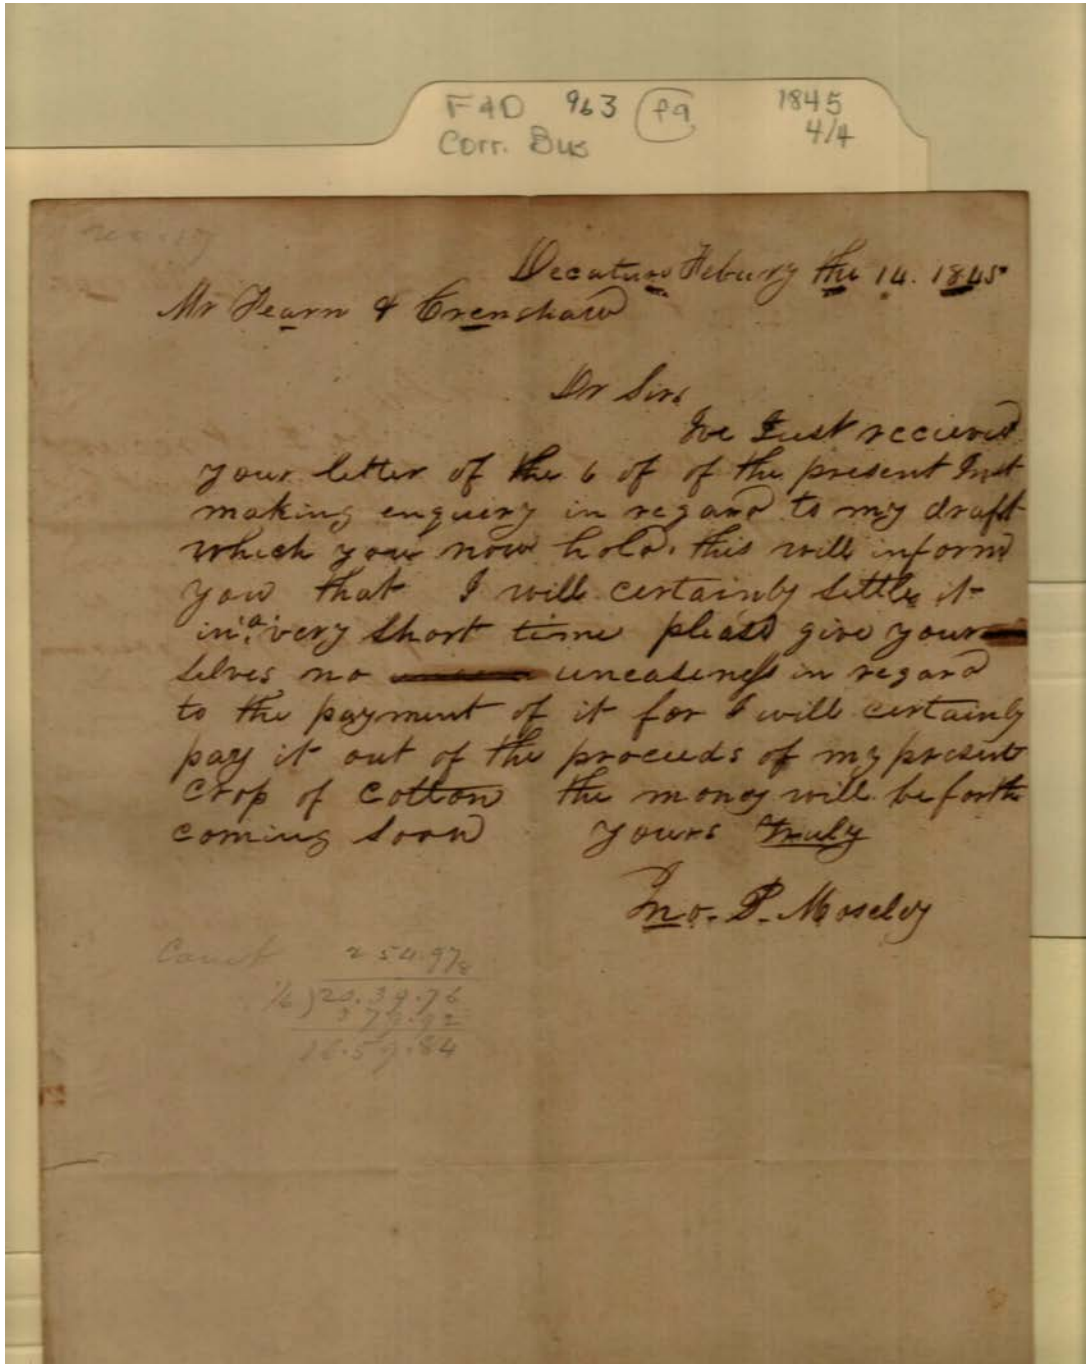 F&D 963 fg 1845
Corr. Bus 4/4
Decatur Febury the 14. 1845
Mr Fearn & Crenshaw
Dr Sirs
Ive Just recieved
your letter of the 6 of of the present Inst
making enquiry in regard to my draft
which you now hold. this will inform
you that I will certainly settle it
in a very short time please give your
selves no uneaseness in regard
to the payment of it for I will certainly
pay it out of the proceeds of my present
Crop of Cotton the money will be forth
coming soon yours Truly
Jno. P. Moseley
254.97
1/6 )20.39.76
3 79.92
16.59.84